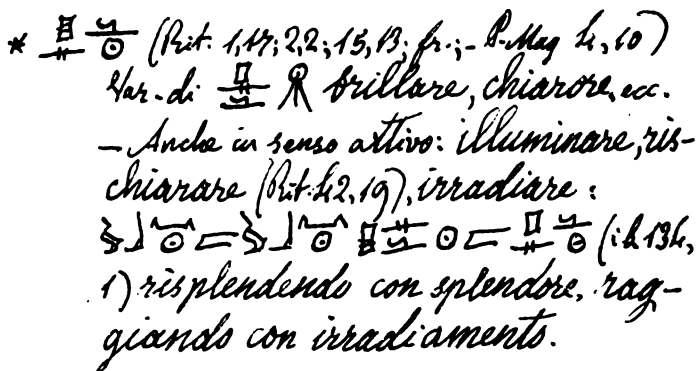 * (Rit. 1,17; 2,2; 15,13; fr.; - P. Mag 4,10)
Var. di brillare, chiarore, ecc.
— Anche in senso attivo: illuminare, ris-
chiarare (Rit. 42, 19), irradiare:
(ib. 134,
1) risplendendo con splendore, rag-
giando con irradiamento.